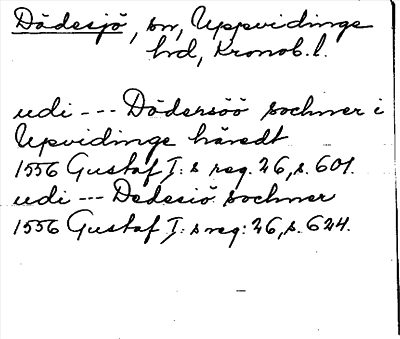 Dädesjö, sn, Uppvidinge
hrd, Kronob. l.
udi --- Dödersöö sochner i
Upvidinge häredt
1556 Gustaf I:s reg. 26, s. 601.
udi --- Dedesiö sochner
1556 Gustaf I:s reg: 26, s. 624.